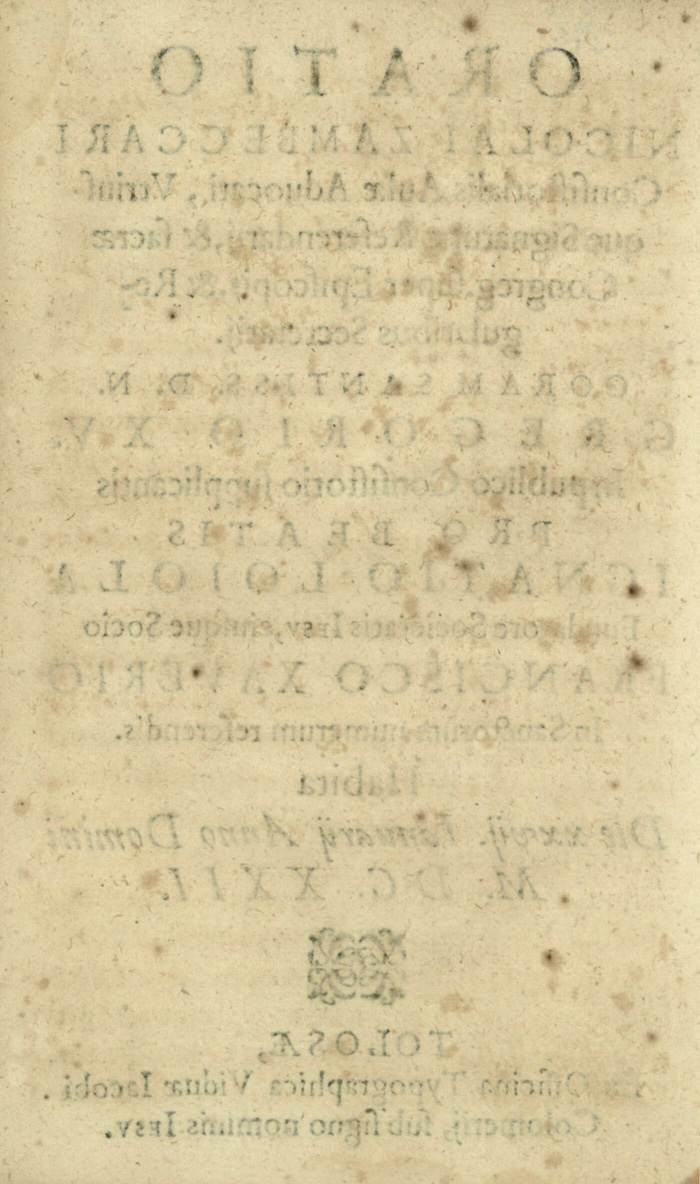 ORATIO
NICOLAI ZAMBECCARI
Consistorialis Aulæ Aduocati, Vtriuſ-
que Signaturæ Referendarij, & ſacræ
Congreg. ſuper Epiſcopis, & Re-
gularibus Secretarij.
CORAM SANTISS. D. N.
GREGORIO XV.
In publico Conſiſtorio ſupplicantis
PRO BEATIS
IGNATIO LOJOLA
Fundatore Societatis IESV, eiuſque Socio
FRANCISCO XAVERIO
In Sanctorum numerum referendis.
Habita
Die xxvij. Ianuarij Anno Domini
M. DC. XXII.
TOLOSÆ,
Ex Officina Typographica Viduæ Iacobi
Colomerij, ſub ſigno nominis IESV.